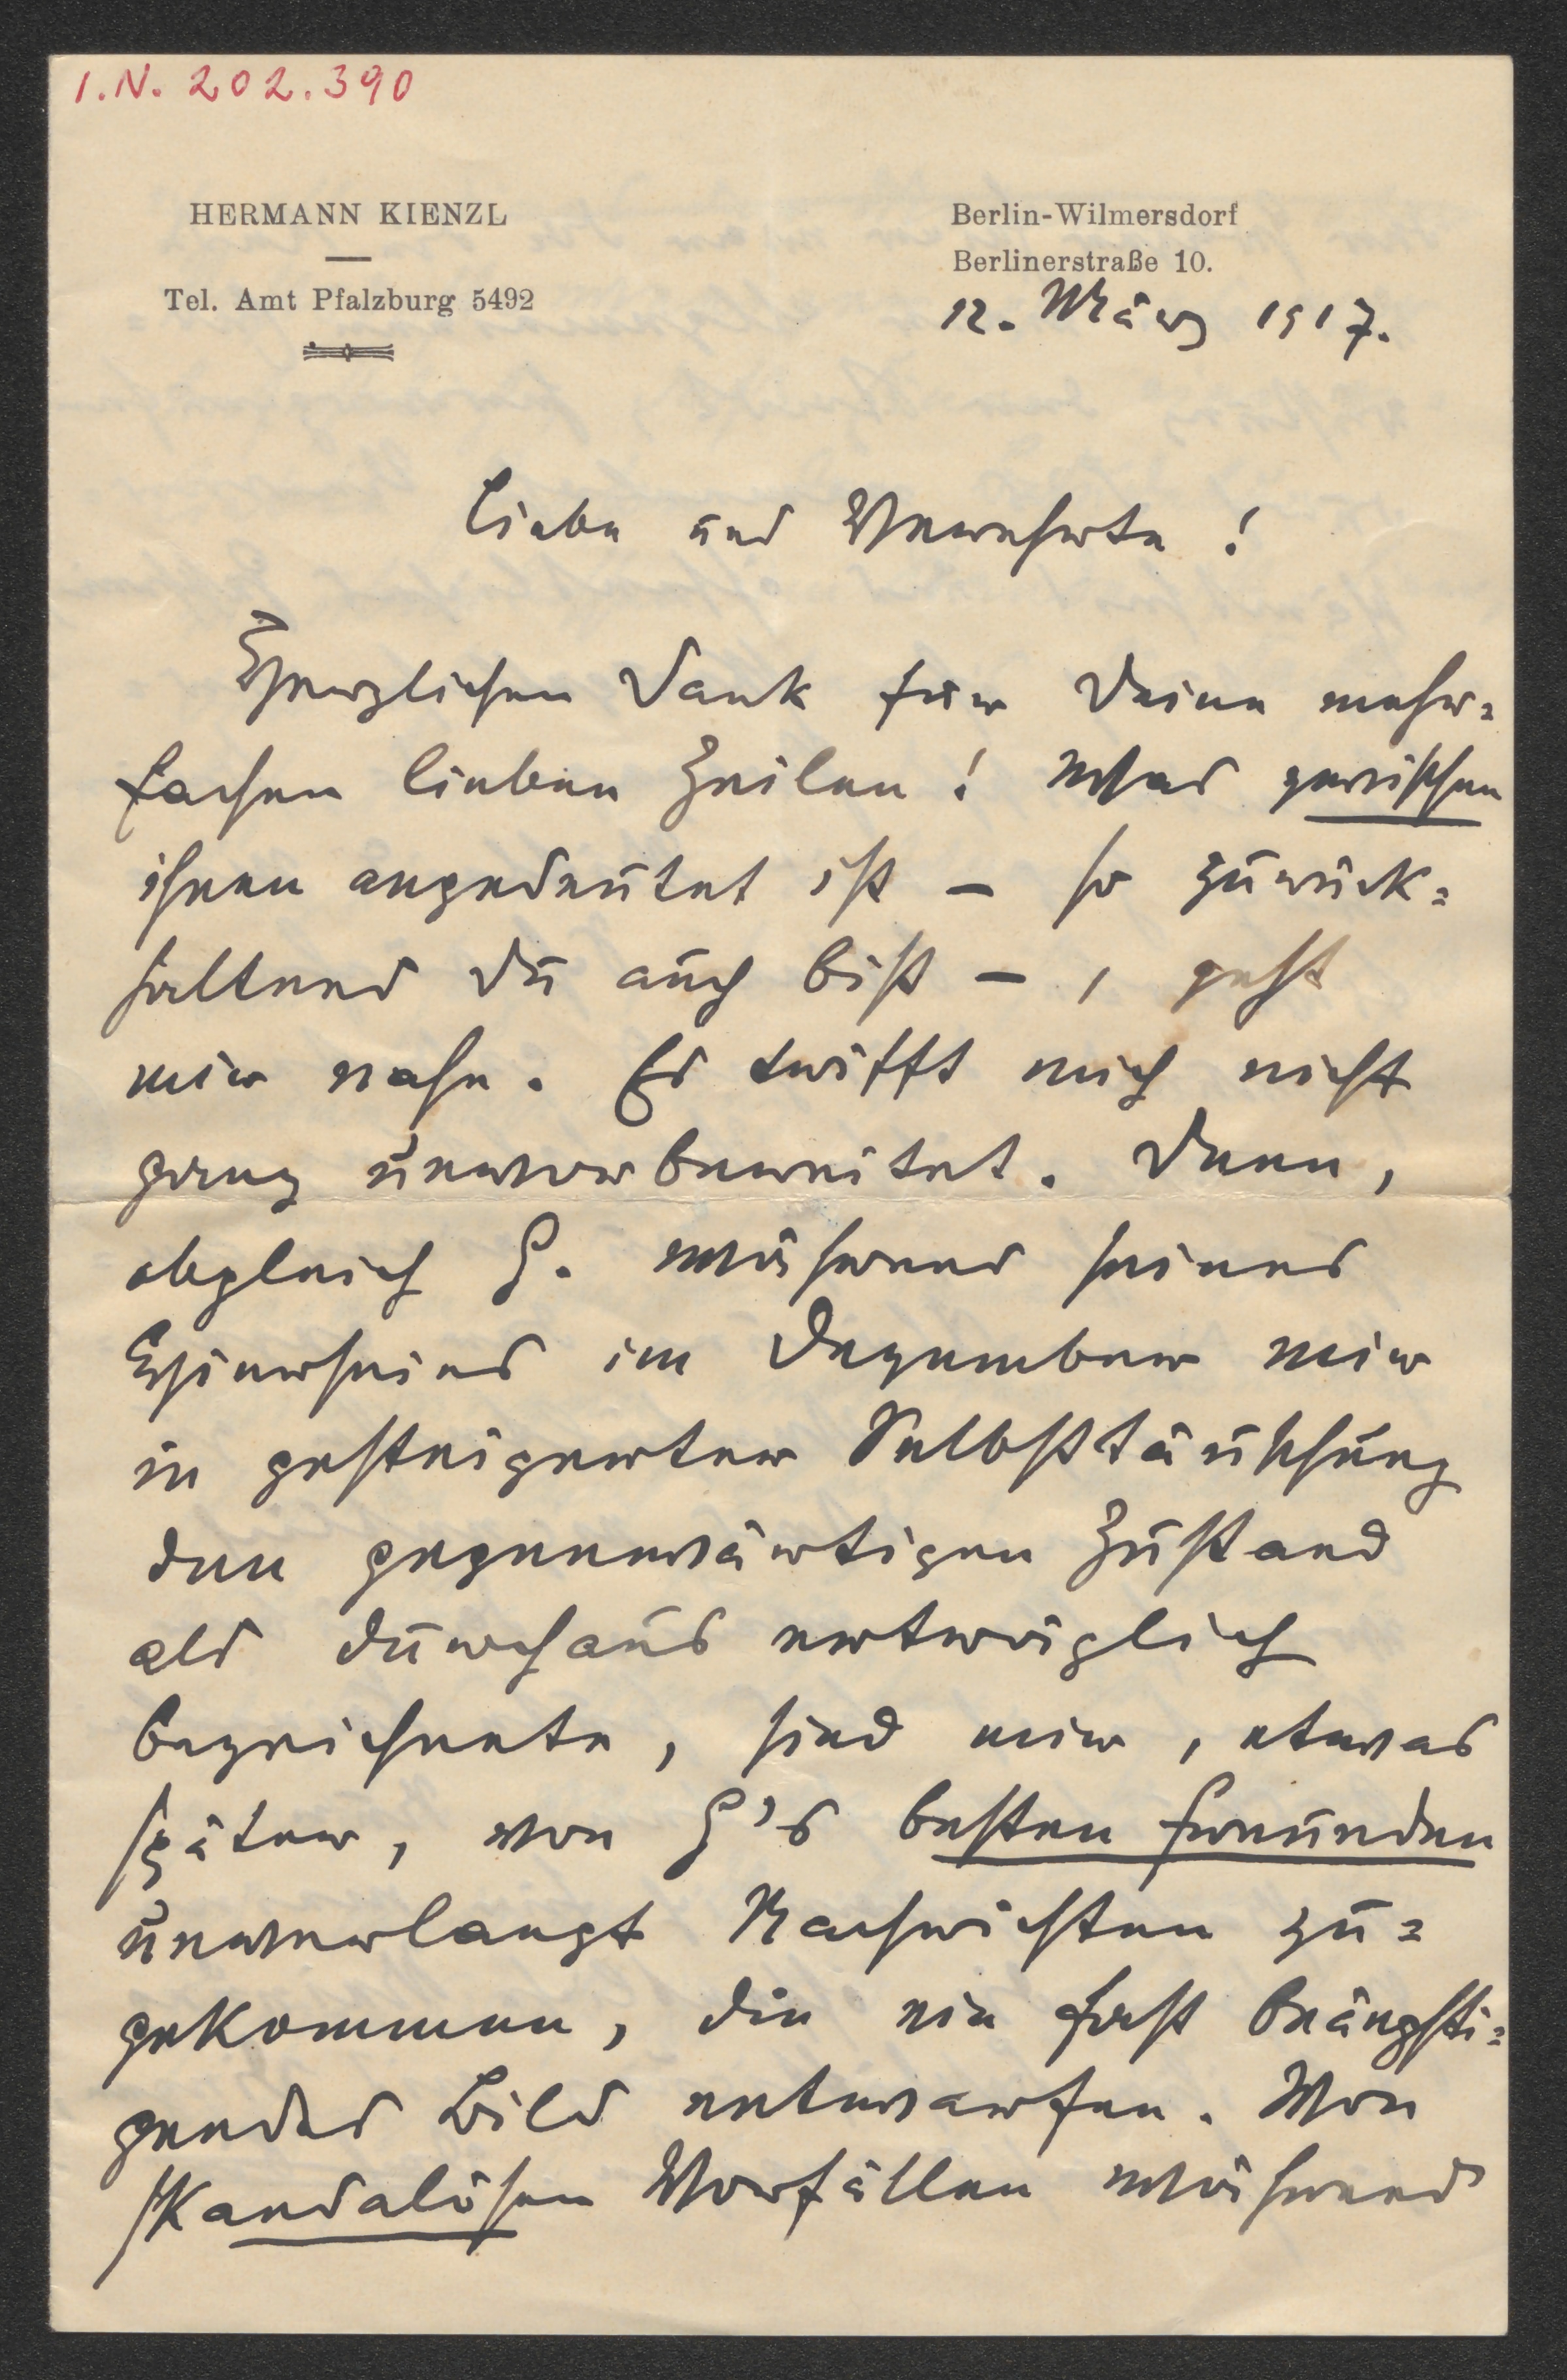 I.N. 202.390
HERMANN KIENZL
Tel. Amt Pfalzburg 5492
Berlin-Wilmersdorf
Berlinerstraße 10.
12. März 1917.
Liebe und Verehrte!
Herzlichen Dank für Deine mehr=
fachen lieben Zeilen! Was zwischen
ihnen angedeutet ist – so zurück=
haltend Du auch bist –, geht
mir nahe. Es trifft mich nicht
ganz unvorbereitet. Denn,
obgleich G. während seines
Hierseins im Dezember mir
in gesteigerter Selbsttäuschung
den gegenwärtigen Zustand
als durchaus erträglich
bezeichnete, sind mir, etwas
später, von G's besten Freunden
unverlangt Nachrichten zu=
gekommen, die ein fast beängsti=
gendes Bild entwarfen. Von
skandalösen Vorfällen während